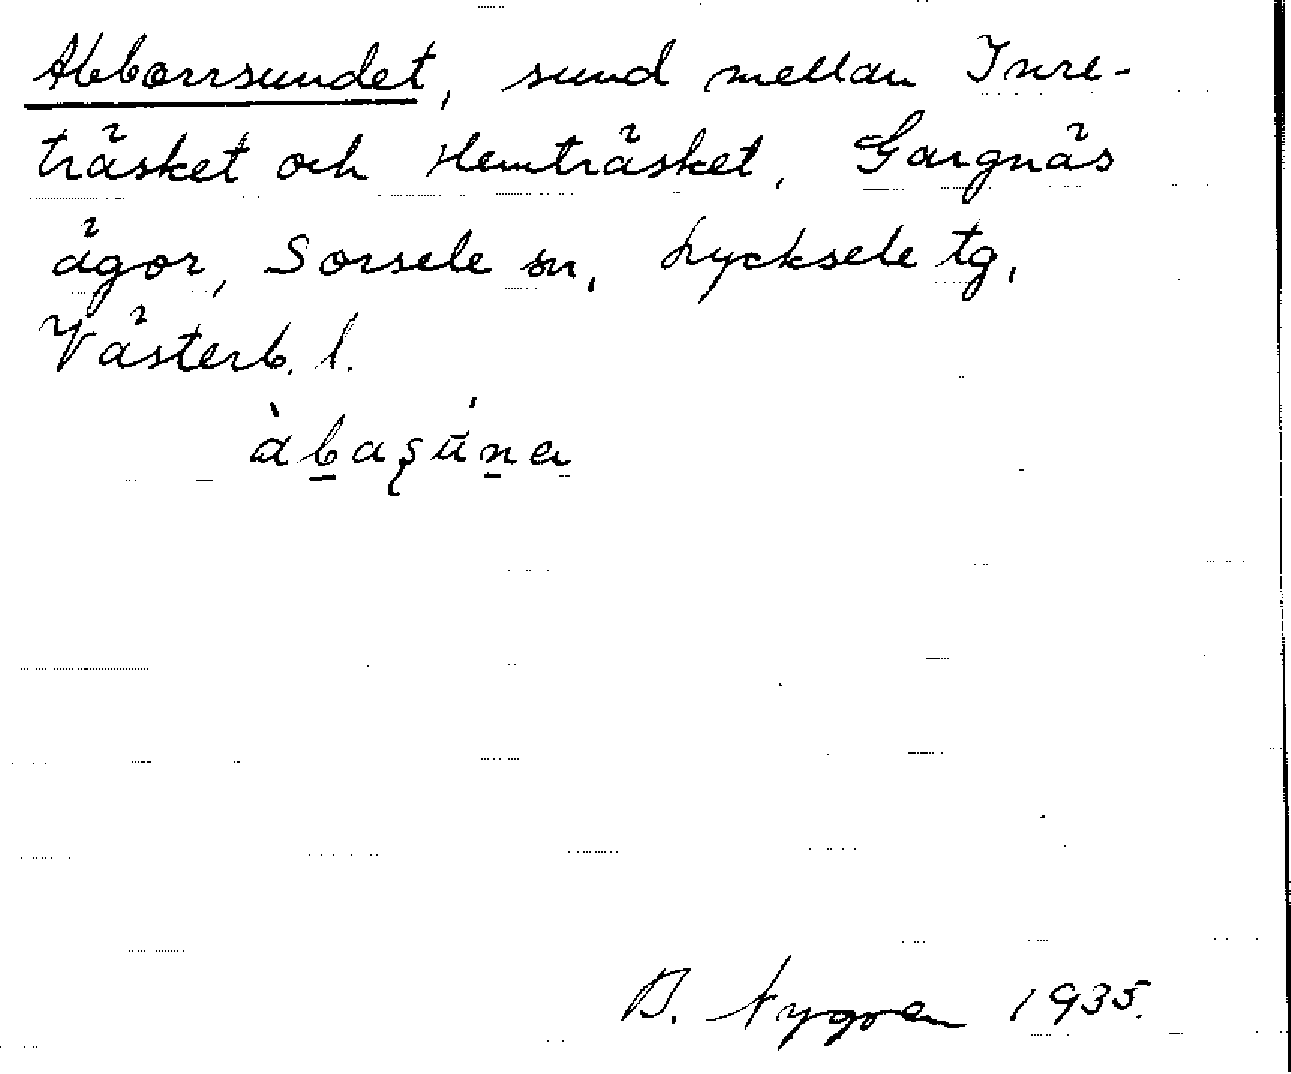 Abborrsundet, sund mellan Inre-
träsket och Hemträsket, Gargnäs
ägor, Sorsele sn, Lycksele tg,
Västerb. l.
B. Nygren 1935.